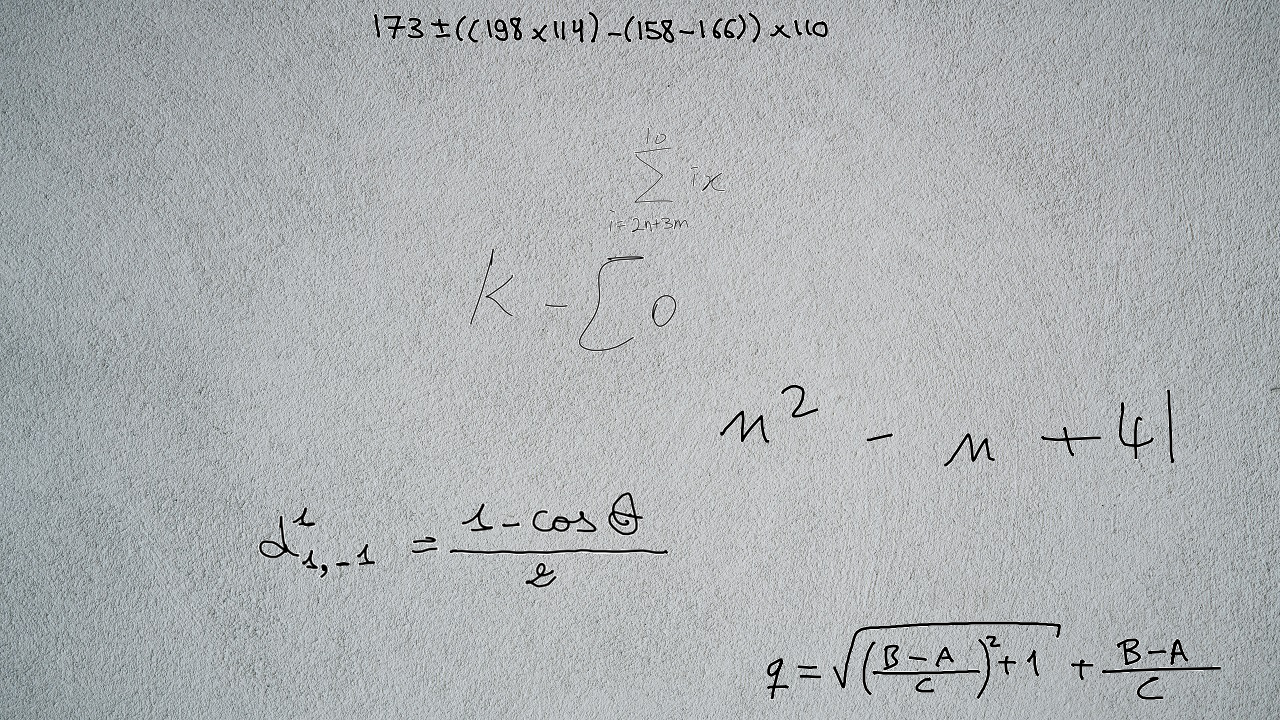 173 ± ((198 × 114) − (158 − 166)) × 110
\sum_{i=2n+3m}^{10} ix
K − [0
n² − n + 41
d^{1}_{1,−1} = \frac{1 − cos θ}{2}
q = \sqrt{(\frac{B − A}{C})^2 + 1} + \frac{B − A}{C}